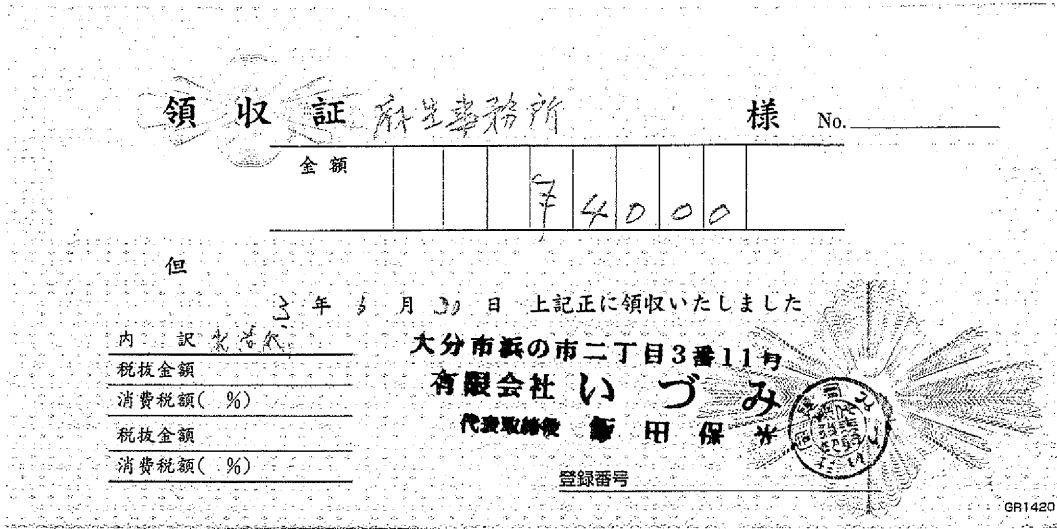 領収証 麻生事務所 様 No.
金額 ¥4000
但
3年 月30日 上記正に領収いたしました
内訳
税抜金額
消費税額( %)
税抜金額
消費税額( %)
大分市浜の市二丁目3番11号
有限会社 いづみ
代表取締役 飯田保米
登録番号
GR1420